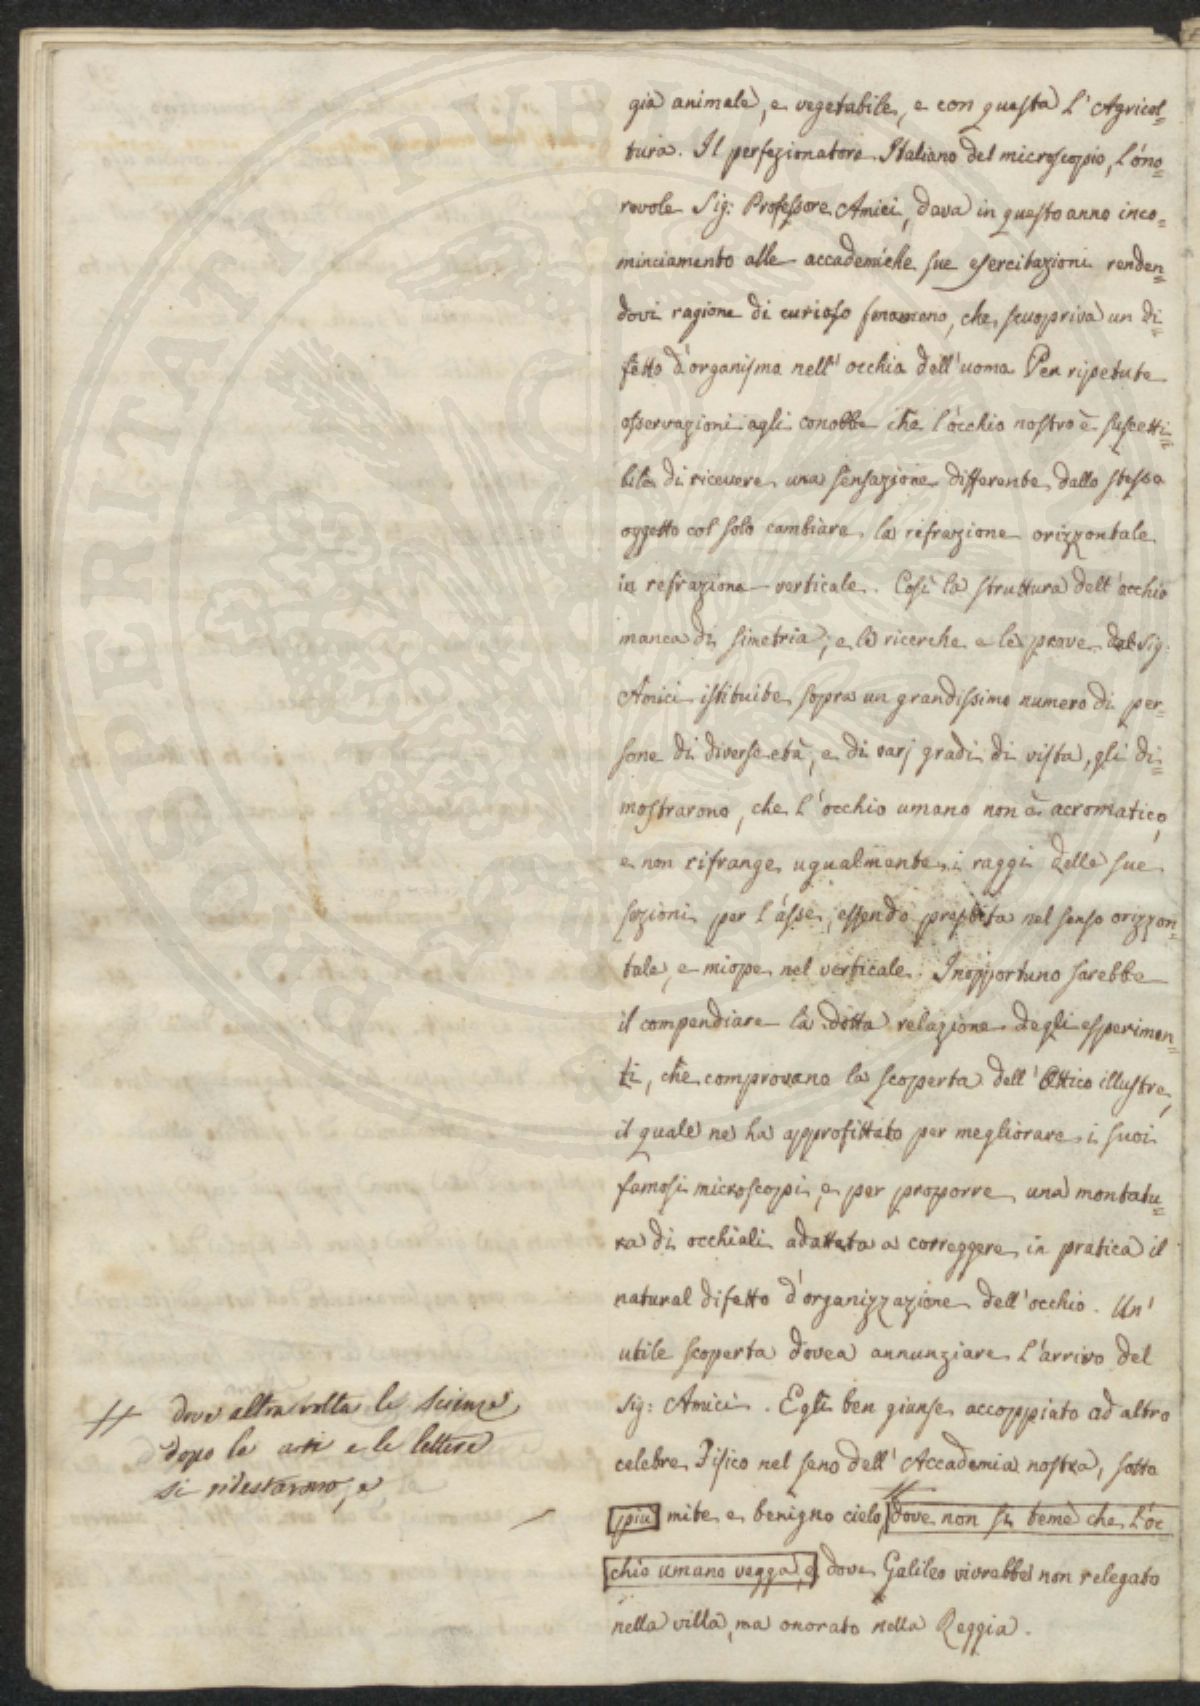 gia animale, e vegetabile, e con questa l'Agricol=
tura. Il perfezionatore Italiano del microscopio, l'ono=
revole Sig: Professore Amici, dava in questo anno inco=
minciamento alle accademiche sue esercitazioni renden=
dovi ragione di curioso fenomeno, che scuopriva un di=
fetto d'organismo nell'occhio dell'uomo Per ripetute
osservazioni egli conobbe che l'occhio nostro è suscetti=
bile di ricevere una sensazione differente dallo stesso
oggetto col solo cambiare la refrazione orizzontale
in refrazione verticale. Così la struttura dell'occhio
manca di simetria; e le ricerche e le prove dal Sig:
Amici istituite sopra un grandissimo numero di per=
sone di diverse età, e di varj gradi di vista, gli di=
mostrarono, che l'occhio umano non è acromatico,
e non rifrange ugualmente i raggi delle sue
sezioni per l'asse, essendo presbita nel senso orizzon=
tale, e miope nel verticale. Inopportuno sarebbe
il compendiare la dotta relazione degli esperimen=
ti, che comprovano la scoperta dell'Ottico illustre,
il quale ne ha approfittato per megliorare i suoi
famosi microscopi, e per proporre una montatu=
ra di occhiali adattata a correggere in pratica il
natural difetto d'organizzazione dell'occhio. Un'
utile scoperta dovea annunziare l'arrivo del
Sig: Amici. Egli ben giunse accoppiato ad altro
celebre Fisico nel seno dell'Accademia nostra, sotto
più mite e benigno cielo, // dove non si teme che l'oc
chio umano vegga, e dove Galileo vivrebbe non relegato
nella villa, ma onorato nella Reggia.
// dove altra volta le scienze
dopo le arti e le lettere
si ridestarono, e
PROSPERITATI PUBLICAE